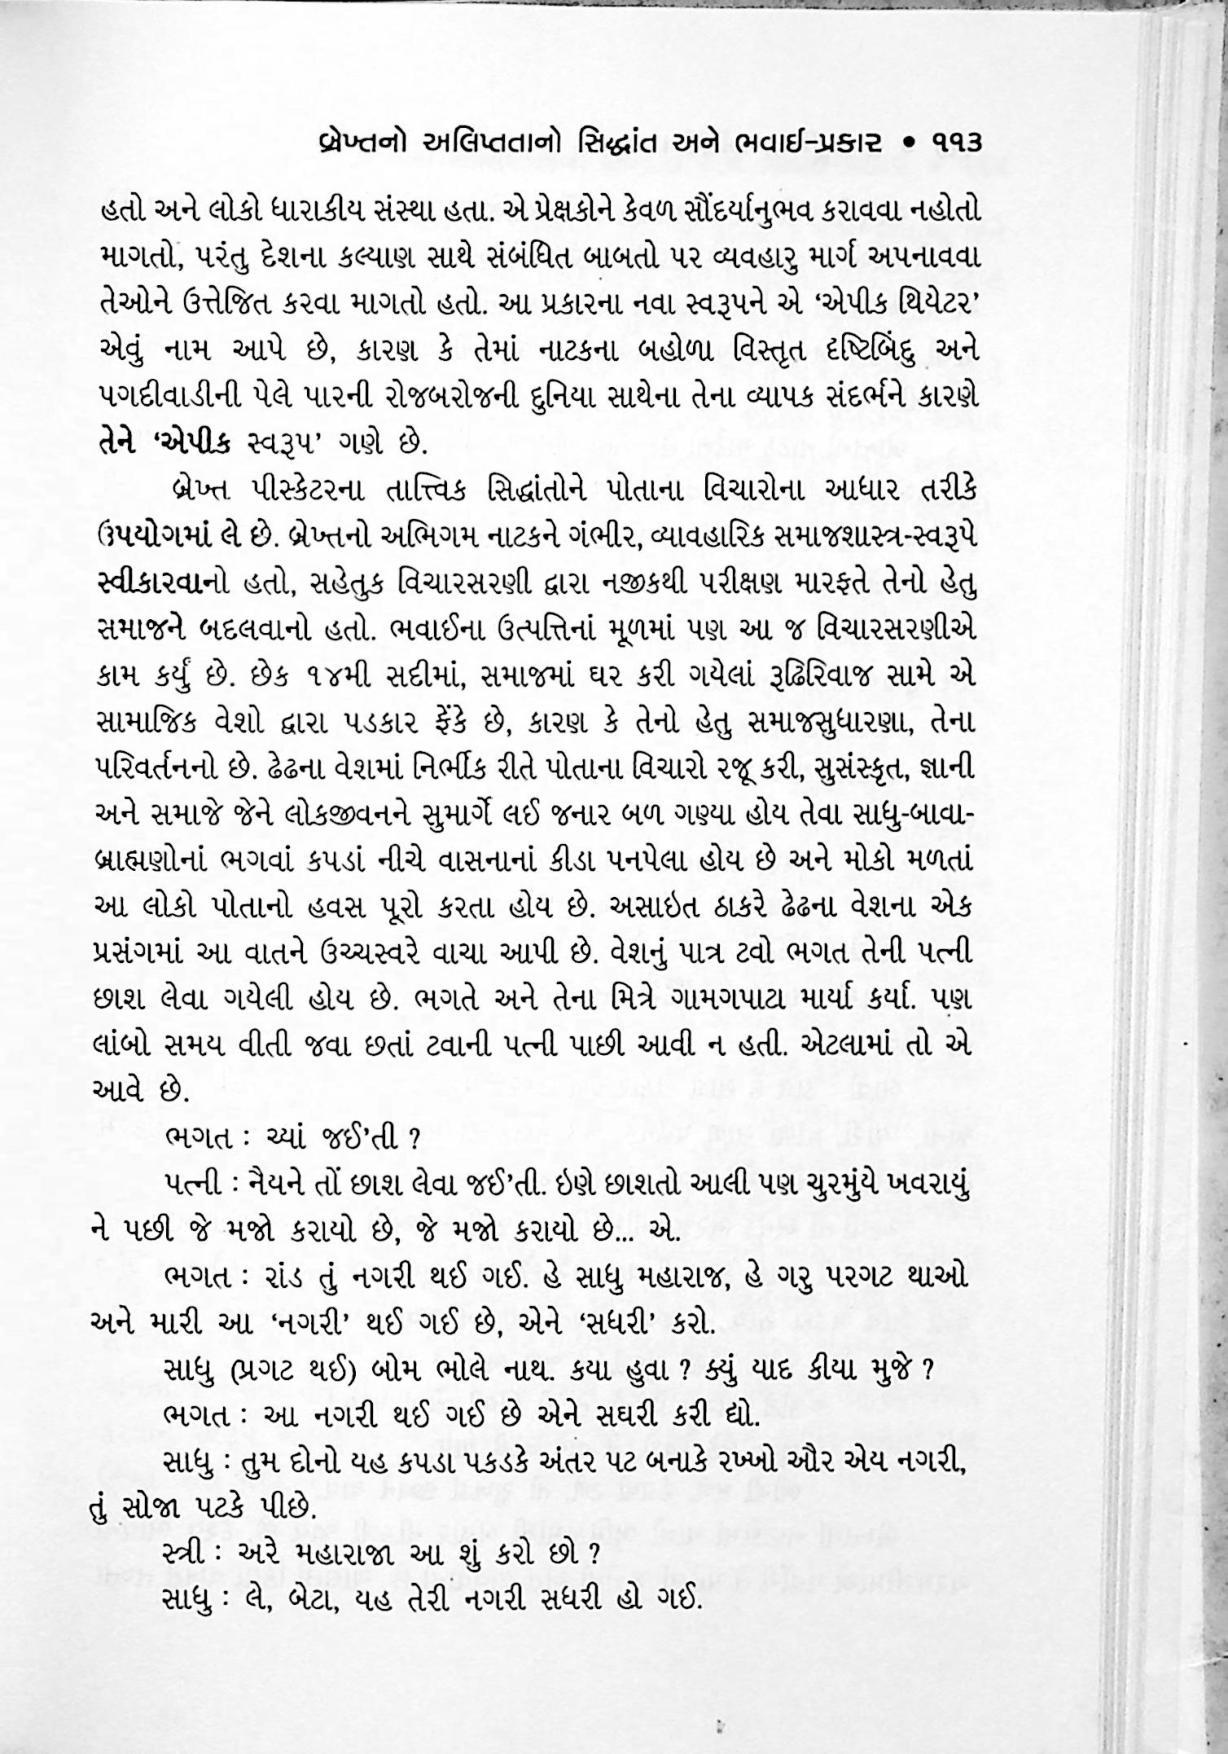 બ્રેખ્તનો અલિપ્તતાનો સિદ્ધાંત અને ભવાઈ-પ્રકાર • ૧૧૩
હતો અને લોકો ધારાકીય સંસ્થા હતા. એ પ્રેક્ષકોને કેવળ સૌંદર્યાનુભવ કરાવવા નહોતો
માગતો, પરંતુ દેશના કલ્યાણ સાથે સંબંધિત બાબતો પર વ્યવહારુ માર્ગ અપનાવવા
તેઓને ઉત્તેજિત કરવા માગતો હતો. આ પ્રકારના નવા સ્વરૂપને એ ‘એપીક થિયેટર’
એવું નામ આપે છે, કારણ કે તેમાં નાટકના બહોળા વિસ્તૃત દૃષ્ટિબિંદુ અને
પગદીવાડીની પેલે પારની રોજબરોજની દુનિયા સાથેના તેના વ્યાપક સંદર્ભને કારણે
તેને ‘એપીક સ્વરૂપ’ ગણે છે.
બ્રેખ્ત પીસ્કેટરના તાત્ત્વિક સિદ્ધાંતોને પોતાના વિચારોના આધાર તરીકે
ઉપયોગમાં લે છે. બ્રેખ્તનો અભિગમ નાટકને ગંભીર, વ્યાવહારિક સમાજશાસ્ત્ર-સ્વરૂપે
સ્વીકારવાનો હતો, સહેતુક વિચારસરણી દ્વારા નજીકથી પરીક્ષણ મારફતે તેનો હેતુ
સમાજને બદલવાનો હતો. ભવાઈના ઉત્પત્તિનાં મૂળમાં પણ આ જ વિચારસરણીએ
કામ કર્યું છે. છેક ૧૪મી સદીમાં, સમાજમાં ઘર કરી ગયેલાં રૂઢિરિવાજ સામે એ
સામાજિક વેશો દ્વારા પડકાર ફેંકે છે, કારણ કે તેનો હેતુ સમાજસુધારણા, તેના
પરિવર્તનનો છે. ઢેઢના વેશમાં નિર્ભીક રીતે પોતાના વિચારો રજૂ કરી, સુસંસ્કૃત, જ્ઞાની
અને સમાજે જેને લોકજીવનને સુમાર્ગે લઈ જનાર બળ ગણ્યા હોય તેવા સાધુ-બાવા-
બ્રાહ્મણોનાં ભગવાં કપડાં નીચે વાસનાનાં કીડા પનપેલા હોય છે અને મોકો મળતાં
આ લોકો પોતાનો હવસ પૂરો કરતા હોય છે. અસાઇત ઠાકરે ઢેઢના વેશના એક
પ્રસંગમાં આ વાતને ઉચ્ચસ્વરે વાચા આપી છે. વેશનું પાત્ર ટવો ભગત તેની પત્ની
છાશ લેવા ગયેલી હોય છે. ભગતે અને તેના મિત્રે ગામગપાટા માર્યા કર્યા. પણ
લાંબો સમય વીતી જવા છતાં ટવાની પત્ની પાછી આવી ન હતી. એટલામાં તો એ
આવે છે.
ભગત : ચ્યાં જઈ’તી ?
પત્ની : નૈયને તોં છાશ લેવા જઈ’તી. ઇણે છાશતો આલી પણ ચુરમુંયે ખવરાયું
ને પછી જે મજો કરાયો છે, જે મજો કરાયો છે... એ.
ભગત : રાંડ તું નગરી થઈ ગઈ. હે સાધુ મહારાજ, હે ગરુ પરગટ થાઓ
અને મારી આ ‘નગરી’ થઈ ગઈ છે, એને ‘સધરી’ કરો.
સાધુ (પ્રગટ થઈ) બોમ ભોલે નાથ. કયા હુવા ? ક્યું યાદ કીયા મુજે ?
ભગત : આ નગરી થઈ ગઈ છે એને સઘરી કરી દ્યો.
સાધુ : તુમ દોનો યહ કપડા પકડકે અંતર પટ બનાકે રખ્ખો ઔર એય નગરી,
તું સોજા પટકે પીછે.
સ્ત્રી : અરે મહારાજા આ શું કરો છો ?
સાધુ : લે, બેટા, યહ તેરી નગરી સધરી હો ગઈ.